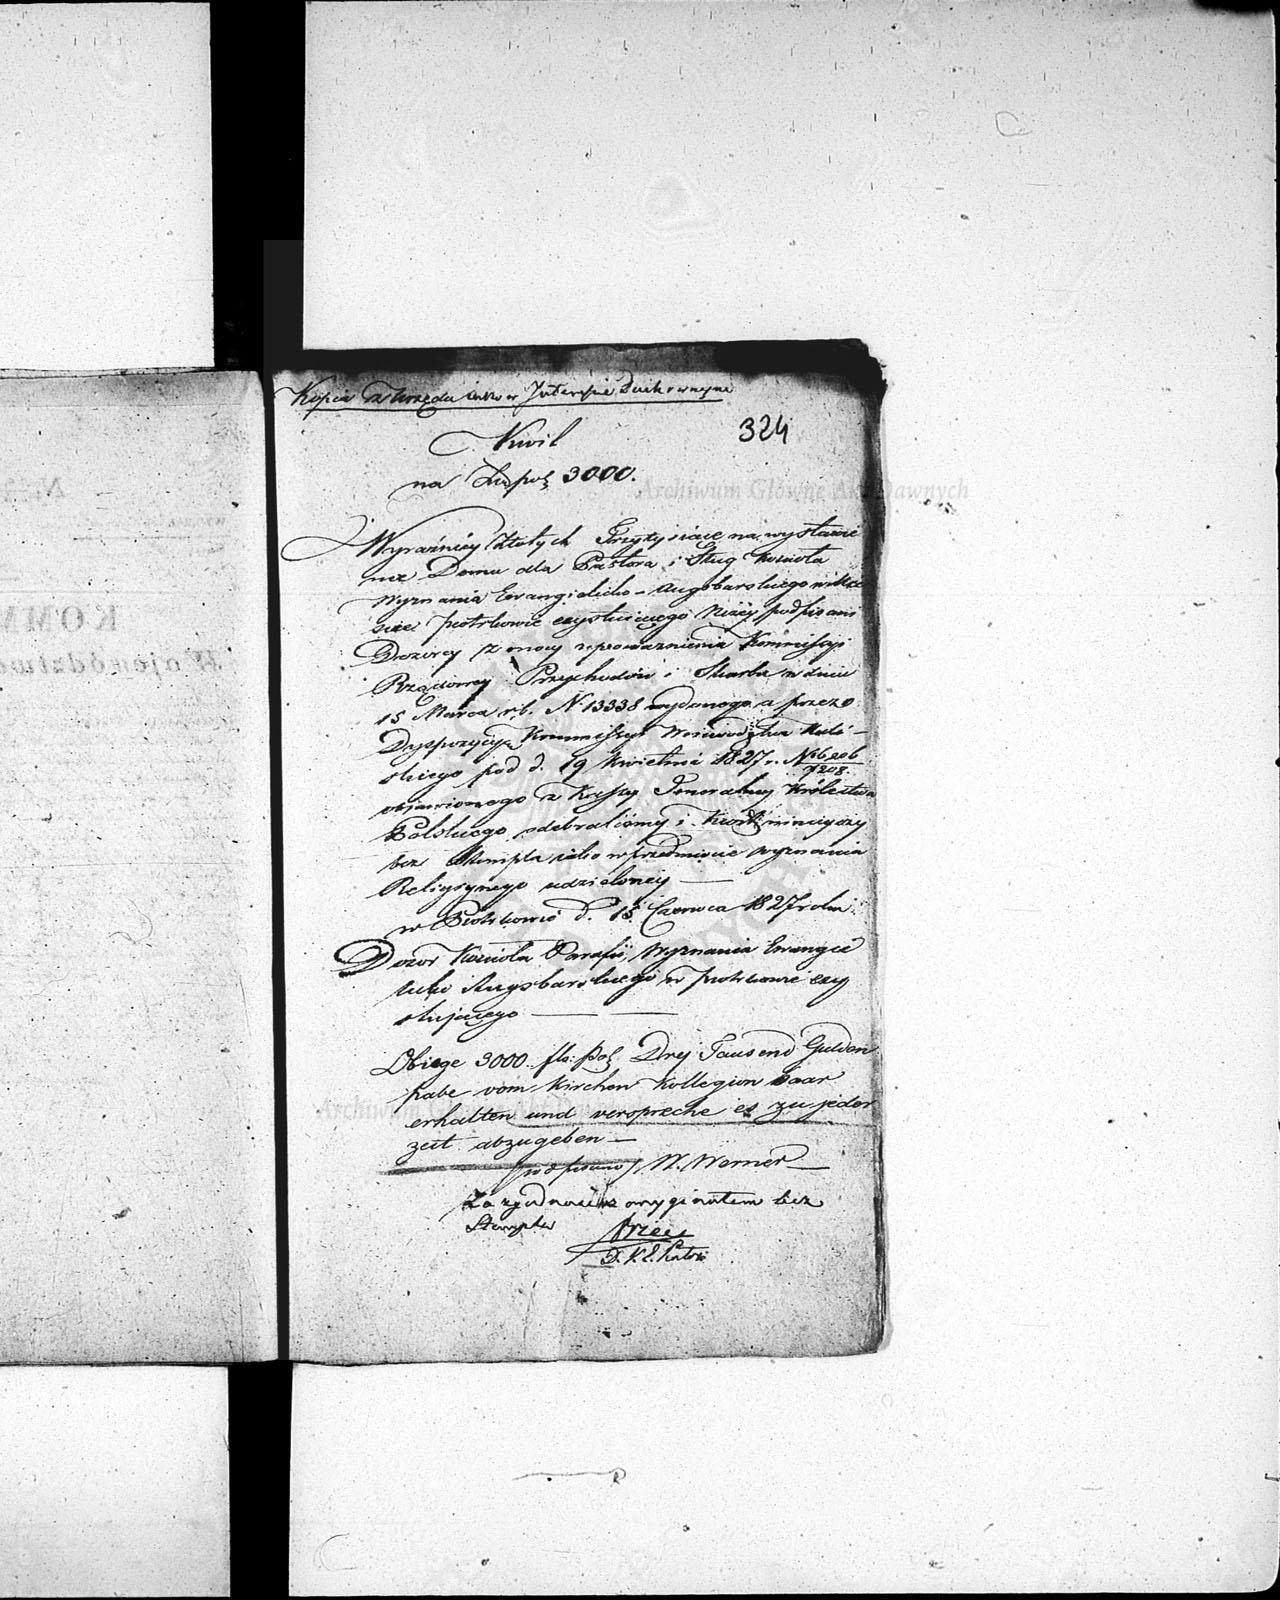 Kopia z Urzędu jako w Interesie Duchownym
324
Kwit
na Złp pol 3000.
Wyraźniey Złotych Trzytysiące na wystawie
nie Domu dla Pastora i Sług Kościoła
Wyznania Ewangielicko-Augsbarskiego w Mie
ście Piotrkowie exystuiącego Niżey podpisani
Dozorcy z mocy upoważnienia Kommissyi
Rządowey Przychodów i Skarbu w dniu
15 Marca r.b. N. 13338 wydanego a przez
Dyspozycyę Kommissyi Woiewództwa Kali-
skiego pod d. 19 Kwietnia 1827 r. No
7208
objawionego z Kassy Jeneralney Królestwa
Polskiego odebraliśmy i Kwit nineyszy
bez Stempla iako w przedmiocie wyznania
Religiynego udzieloney
w Piotrkowie d. 15 Czerwca 1827 roku
Dozor Kościoła Parafii Wyznania Ewangie
licko Augsbarskiego w Piotrkowie exy
stuiącego
Obiege 3000 flo: Pol Drey Tausend Gulden
habe vom Kirchen Kollegion baar
erhalten und verspreche es zu jeder
zeit abzugeben
/podpisano/ W. Werner
Za zgodność z oryginałem bez
Stempla
Archiwum Główne Akt Dawnych
Archiwum Główne Akt Dawnych
KOMM
Województwa